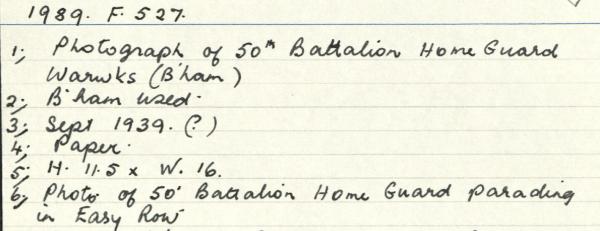 1989. F. 527.
1; Photograph of 50th Battalion Home Guard
Warwks (B'ham)
2; B'ham used.
3; Sept 1939. (?)
4; Paper.
5; H. 11.5 x W. 16.
6; Photo of 50' Battalion Home Guard parading
in Easy Row